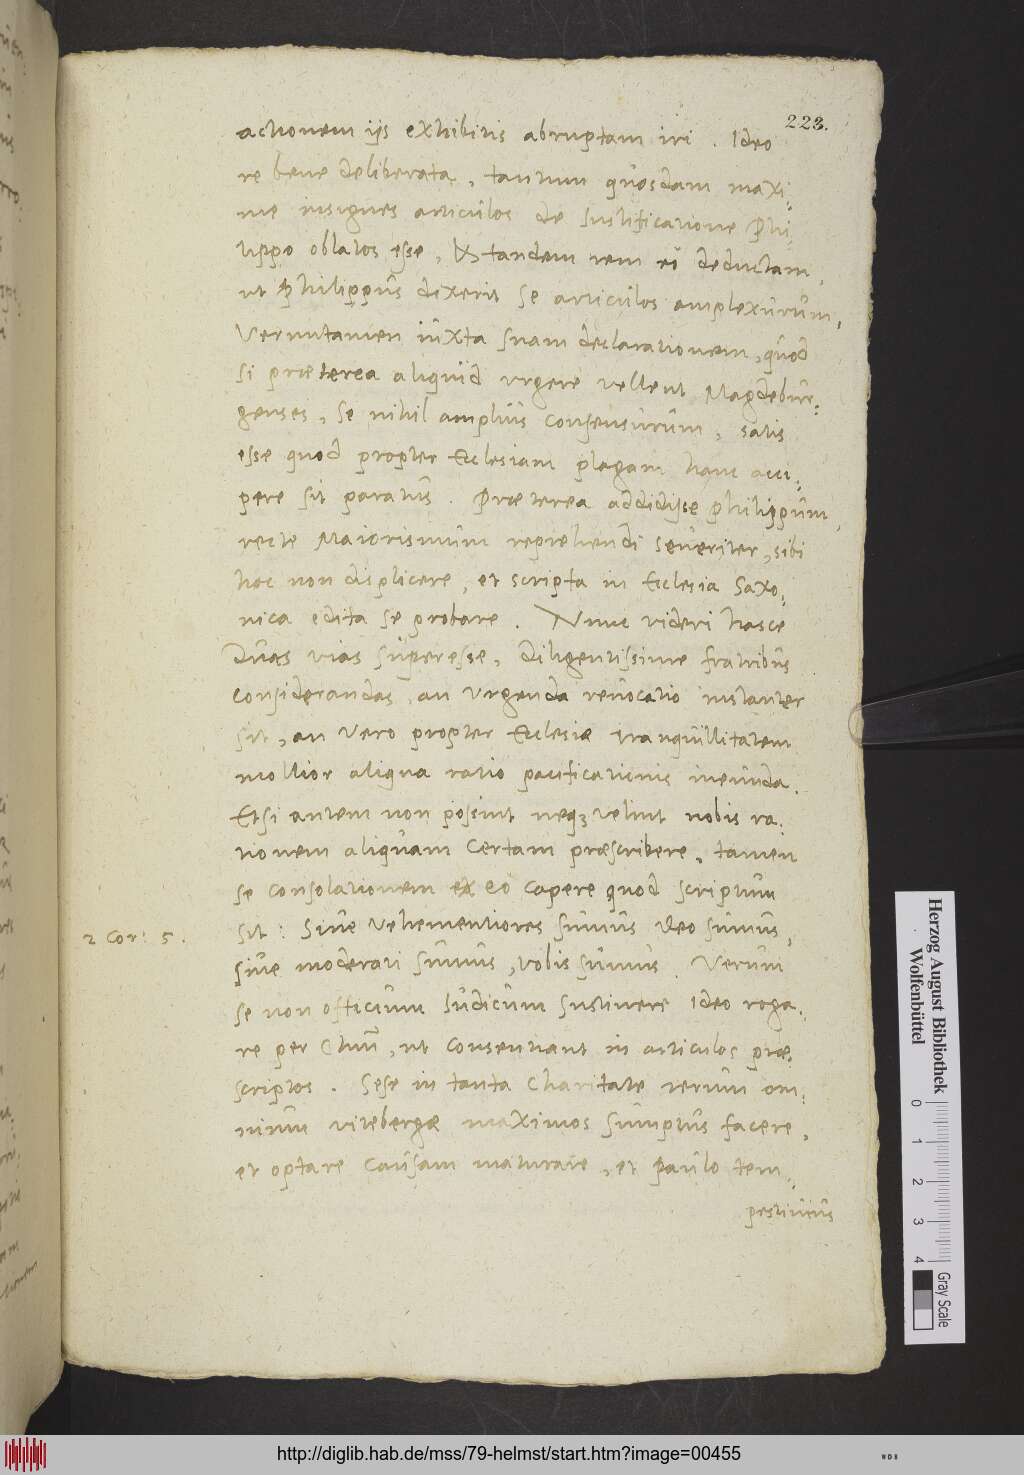 223.
actionem ijs exhibitis abruptam iri. Ideo
re bene deliberata, tantum quosdam maxi-
me insignes articulos de Iustificatione Phi-
lippo oblatos esse, & tandem rem eò deductam,
ut Philippus dixerit se articulos amplexurum,
Veruntamen iuxta suam declarationem, quod
si præterea aliquid urgere vellent Magdebur-
genses, se nihil amplius consensurum, satis
esse quod propter Ecclesiam plagam hanc acci-
pere sit paratus. Præterea addidisse Philippum,
recte Maiorismum reprehendi seueriter, sibi
hoc non displicere, et scripta in Ecclesia Saxo-
nica edita se probare. Nunc videri hasce
Duas vias superesse, diligentissime fratribus
considerandas, an urgenda reuocatio instanter
sit, an vero propter Ecclesiæ tranquillitatem
mollior aliqua ratio pacificationis ineunda.
Etsi autem non possint neqꝫ velint nobis ra-
tionem aliquam certam præscribere, tamen
se consolationem ex eo capere quod scriptum
2 Cor: 5. sit: Siue vehementiores sumus Deo sumus,
siue moderati sumus, vobis sumus. Verum
se non officium Iudicum sustinere Ideo roga-
re per Chrm̃, ut consentiant in articulos præ-
scriptos. Sese in tanta charitate rerum om-
nium vitebergæ maximos sumptus facere,
et optare causam maturare, et paulo tem-
pestiuius
Herzog August Bibliothek
Wolfenbüttel
0 1 2 3 4
Gray Scale
http://diglib.hab.de/mss/79-helmst/start.htm?image=00455